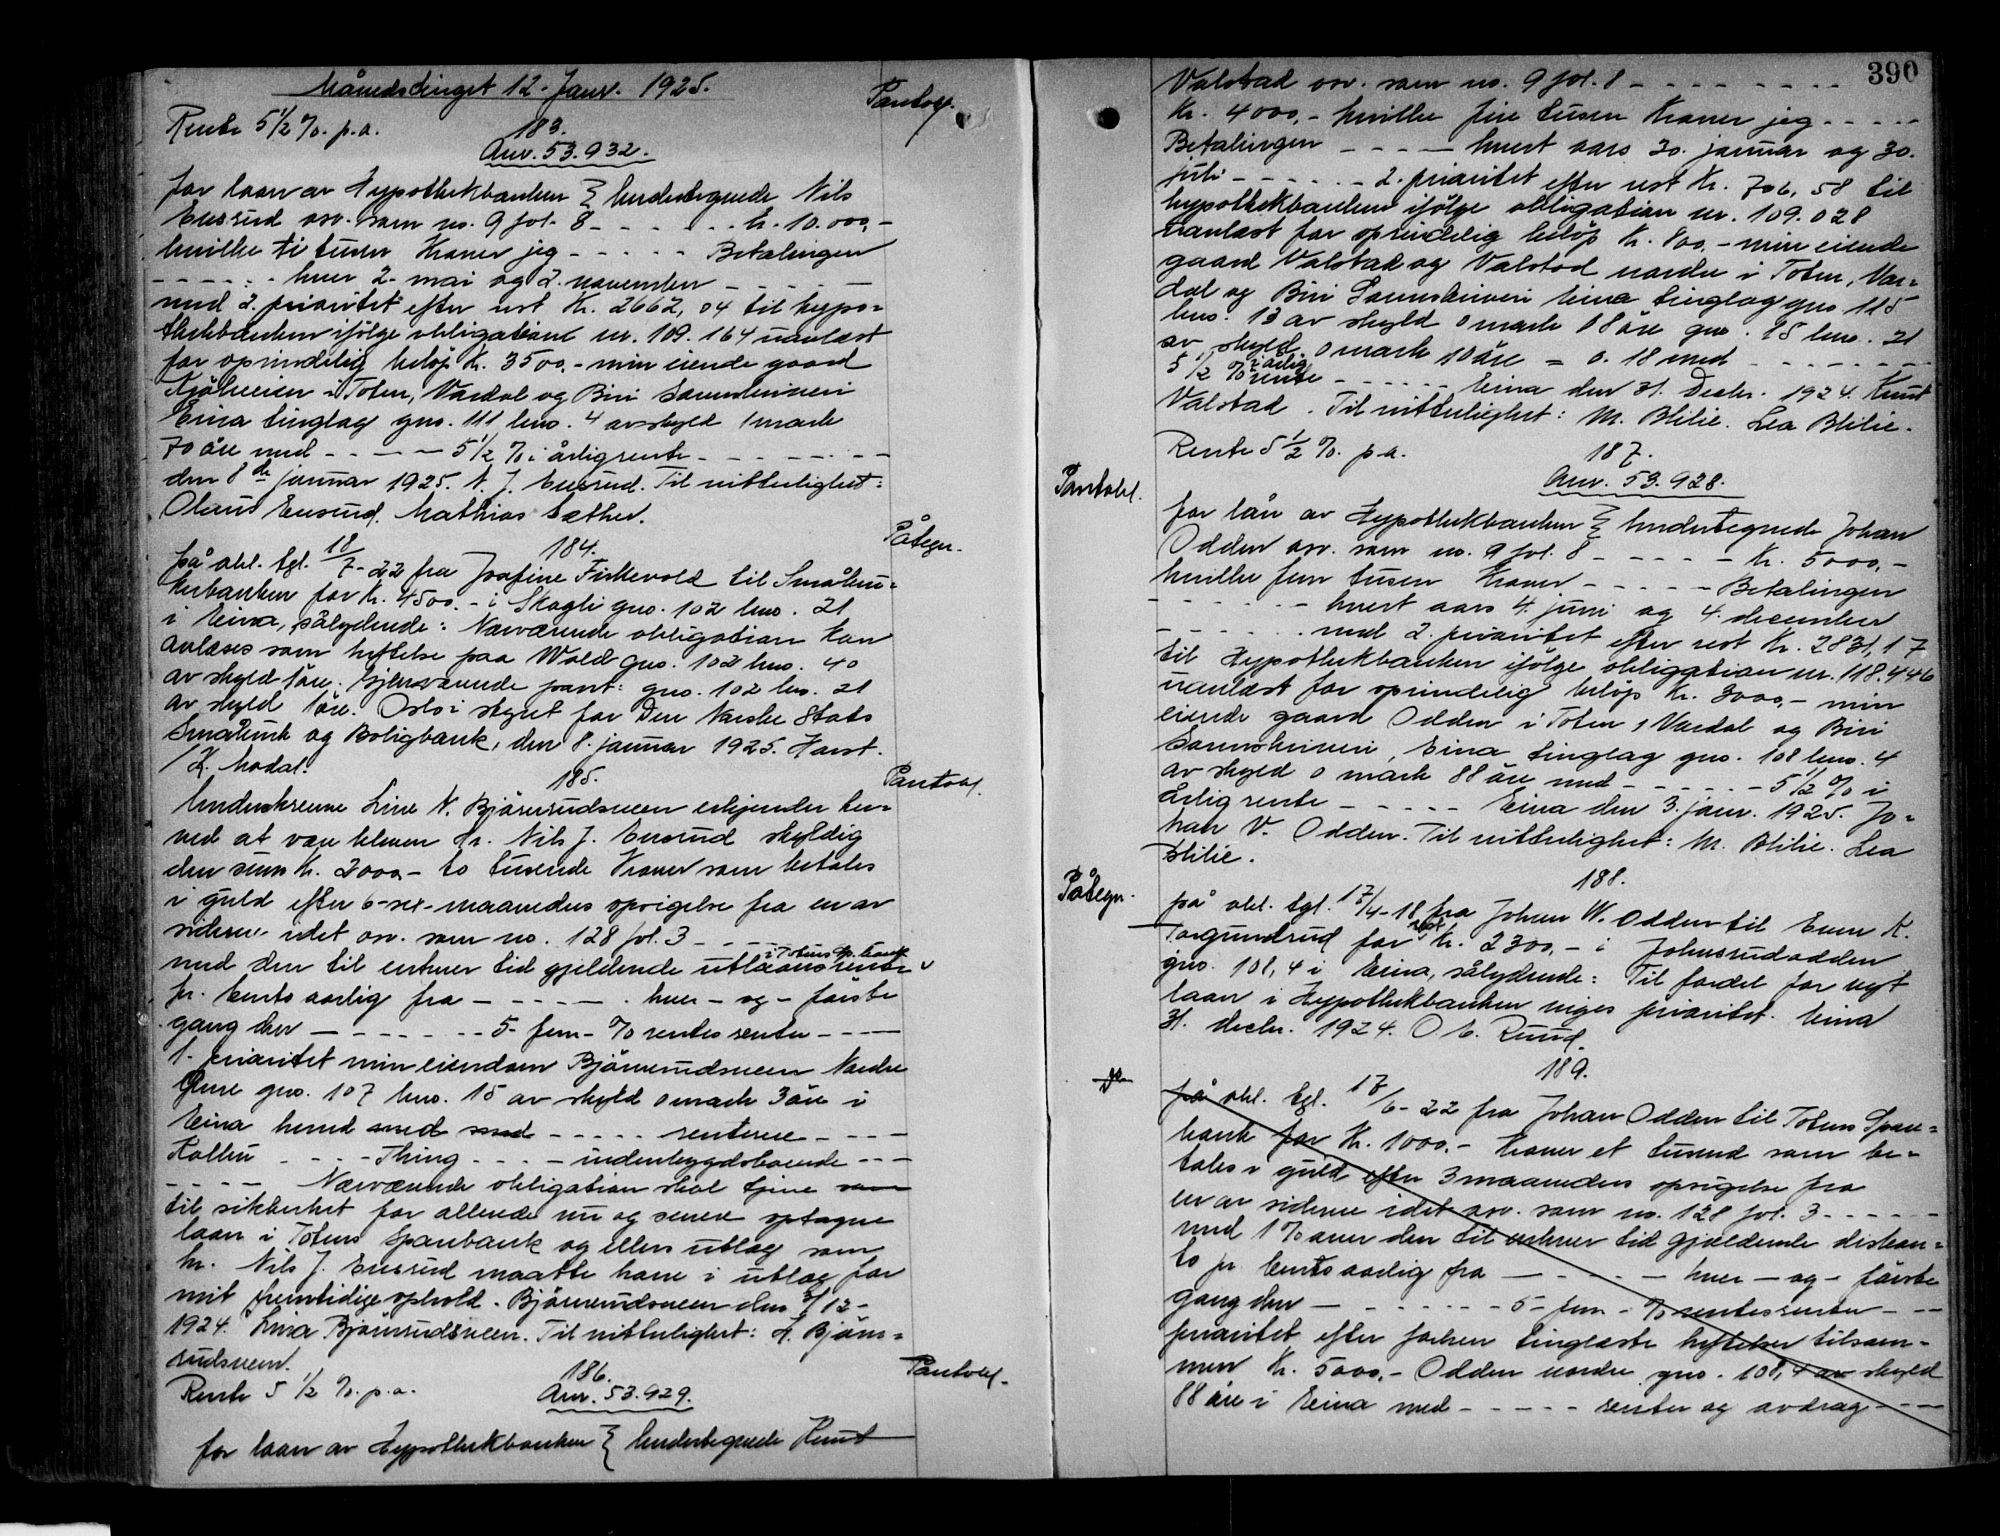 Månedstinget 12. Janr. 1925.
Pantobl.
Rente 5 1/2 %. p.a.
183.
Anv. 53.932.
for laan av Hypothekbanken } Undertegnede Nils
Eusrud osv. som no. 9 fol. 8 - - - - - kr. 10.000,-
hvilke ti tusen Kroner jeg - - - - - Betalingen
- - - - - hver 2. mai og 2. november - - - - -
med 2. prioritet efter rest Kr. 2662,04 til hypo=
thekbanken ifølge obligation nr. 109.164 uavløst
for oprindelig beløp Kr. 3500,- min eiende gaard
i Toten, Vardal og Biri Sorenskriveri
Eina tinglag gno. 111 bno. 4 av skyld 1 mark
70 øre med - - - - - 5 1/2 % i årlig rente - - - - -
den 8de januar 1925. N. J. Eusrud. Til vitterlighet:
Olaus Eusrud. Mathias Sæther.
Påtegn.
184.
på obl. tgl. 18/7-22 fra Josefine Fiskevold til Småbru=
kerbanken for Kr. 4500,- i Skogli gno. 102 bno. 21
i Eina, sålydende: Nærværende obligation kan
avløses som heftelse paa Wold gno. 102 bno. 40
av skyld 1 øre. Gjenværende pant: gno. 102 bno. 21
av skyld 1 øre. Oslo i styret for Den Norske Stats
Småbruk og Boligbank, den 8. januar 1925. Horst.
/K. Modal.
185.
Pantobl.
Underskrevne Line N. Bjørnerudsveen erkjender her=
ved at være bleven hr. Nils J. Eusrud skyldig
den sum Kr. 2000,- to tusende Kroner som betales
i guld efter 6-sex-maaneders opsigelse fra en av
siderne idet osv. som no. 128 fol. 3 - - - -
i Totens Sp. bank
med den til enhver tid gjeldende utlaansrente
pr. cento aarlig fra - - - - - hver - og - første
gang den - - - - - 5- fem - % rentes renter - - - -
1. prioritet min eiendom Bjørnerudsveen Nordre
gno. 107 bno. 15 av skyld 0 mark 3 øre i
Eina herred med med - - - - - renterne - - -
- - - - Thing - - - - indenbygdsboende - - -
- - - - Nærværende obligation skal tjene som
til sikkerhet for allerede nu og senere optagne
laan i Totens Sparebank og ellers utlæg som
hr. Nils J. Eusrud maatte have i utlæg for
mit fremtidige ophold. Bjørnerudsveen den 31/12-
1924. Lina Bjørnerudsveen. Til vitterlighet: H. Bjørne=
rudsveen.
186.
Pantobl.
Rente 5 1/2 %. p.a.
Anv. 53.929.
for laan av Hypothekbanken } Undertegnede Knut
390
Valstad osv. som no. 9 fol. 8 - - - - - - -
Kr. 4000,- hvilke fire tusen Kroner jeg - - - - -
Betalingen - - - - hvert aars 30. januar og 30.
juli - - - - - 2. prioritet efter rest Kr. 706,58 til
hypothekbanken ifølge obligation nr. 109.028
uavløst for oprindelig beløp Kr. 800,- min eiende
gaard Valstad og Valstad nordre i Toten, Var=
dal og Biri Sorenskriveri Eina tinglag gno. 115
bno. 13 av skyld 0 mark 08 øre gno. 85 bno. 21
av skyld 0 mark 10 øre = 0.18 med - - - - - - -
5 1/2 % i årlig rente - - - - - Eina den 31. Decbr. 1924. Knut
Valstad. Til vitterlighet: M. Blilie. Lea Blilie.
Rente 5 1/2 %. p.a.
187.
Pantobl.
Anv. 53.928.
for lån av Hypothekbanken } Undertegnede Johan
Odden osv. som no. 9 fol. 8 - - - - - Kr. 5000,-
hvilke fem tusen Kroner - - - - - Betalingen
- - - - - - hvert aars 4. juni og 4. december
- - - - - - med 2. prioritet efter rest Kr. 2831,17
til Hypothekbanken ifølge obligation nr. 118.446
uavløst for oprindelig beløp Kr. 3000,- min
eiende gaard Odden i Toten, Vardal og Biri
Sorenskriveri, Eina tinglag gno. 108 bno. 4
av skyld 0 mark 88 øre med - - - - - - 5 1/2 % i
årlig rente - - - - - Eina den 3. janr. 1925. Jo=
han V. Odden. Til vitterlighet: M. Blilie. Lea
Blilie.
188.
Påtegn.
på obl. tgl. 17/4-18 fra Johan W. Odden til Even K.
Torgundrud for rest Kr. 2300,- i Johnsrudodden
gno. 108,4 i Eina, sålydende: Til fordel for nyt
laan i Hypothekbanken viges prioritet. Eina
31. decbr. 1924. O. E. Ruud.
189.
do
på obl. tgl. 17/6-22 fra Johan Odden til Totens Spare=
bank for Kr. 1000,- Kroner et tusend som be=
tales i guld efter 3 maaneders opsigelse fra
en av siderne idet osv. som no. 128 fol. 3 - - - - -
med 1 % over den til enhver tid gjældende diskon=
to pr cento aarlig fra - - - - - hver - og - første
gang den - - - - - - 5- fem - % rentes renter - - -
prioritet efter forhen tinglæste heftelser tilsam=
men Kr. 5000,- Odden nordre gno. 108,4 av skyld
88 øre i Eina med - - - - - renter og avdrag - - -